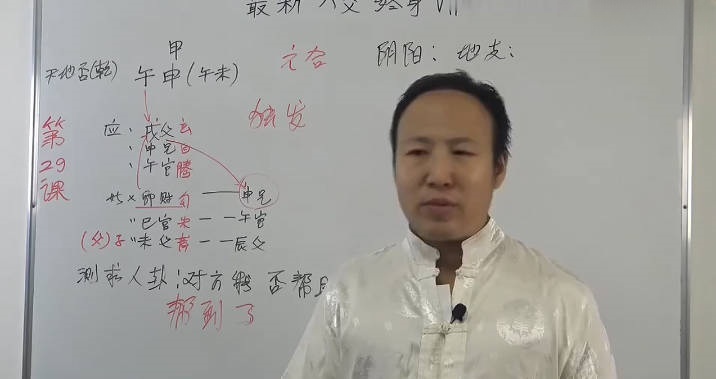 最新六爻终身VII
甲
天地否(乾) 午申(午未) 六合 阴阳: 地支:
第29课
独发
应、戌父玄
、申兄白
、午官腾
世×卯财勾 — 申兄
"巳官朱 — — 午官
(父)子"未父青 — — 辰父
测求人卦:对方能否帮
帮到了